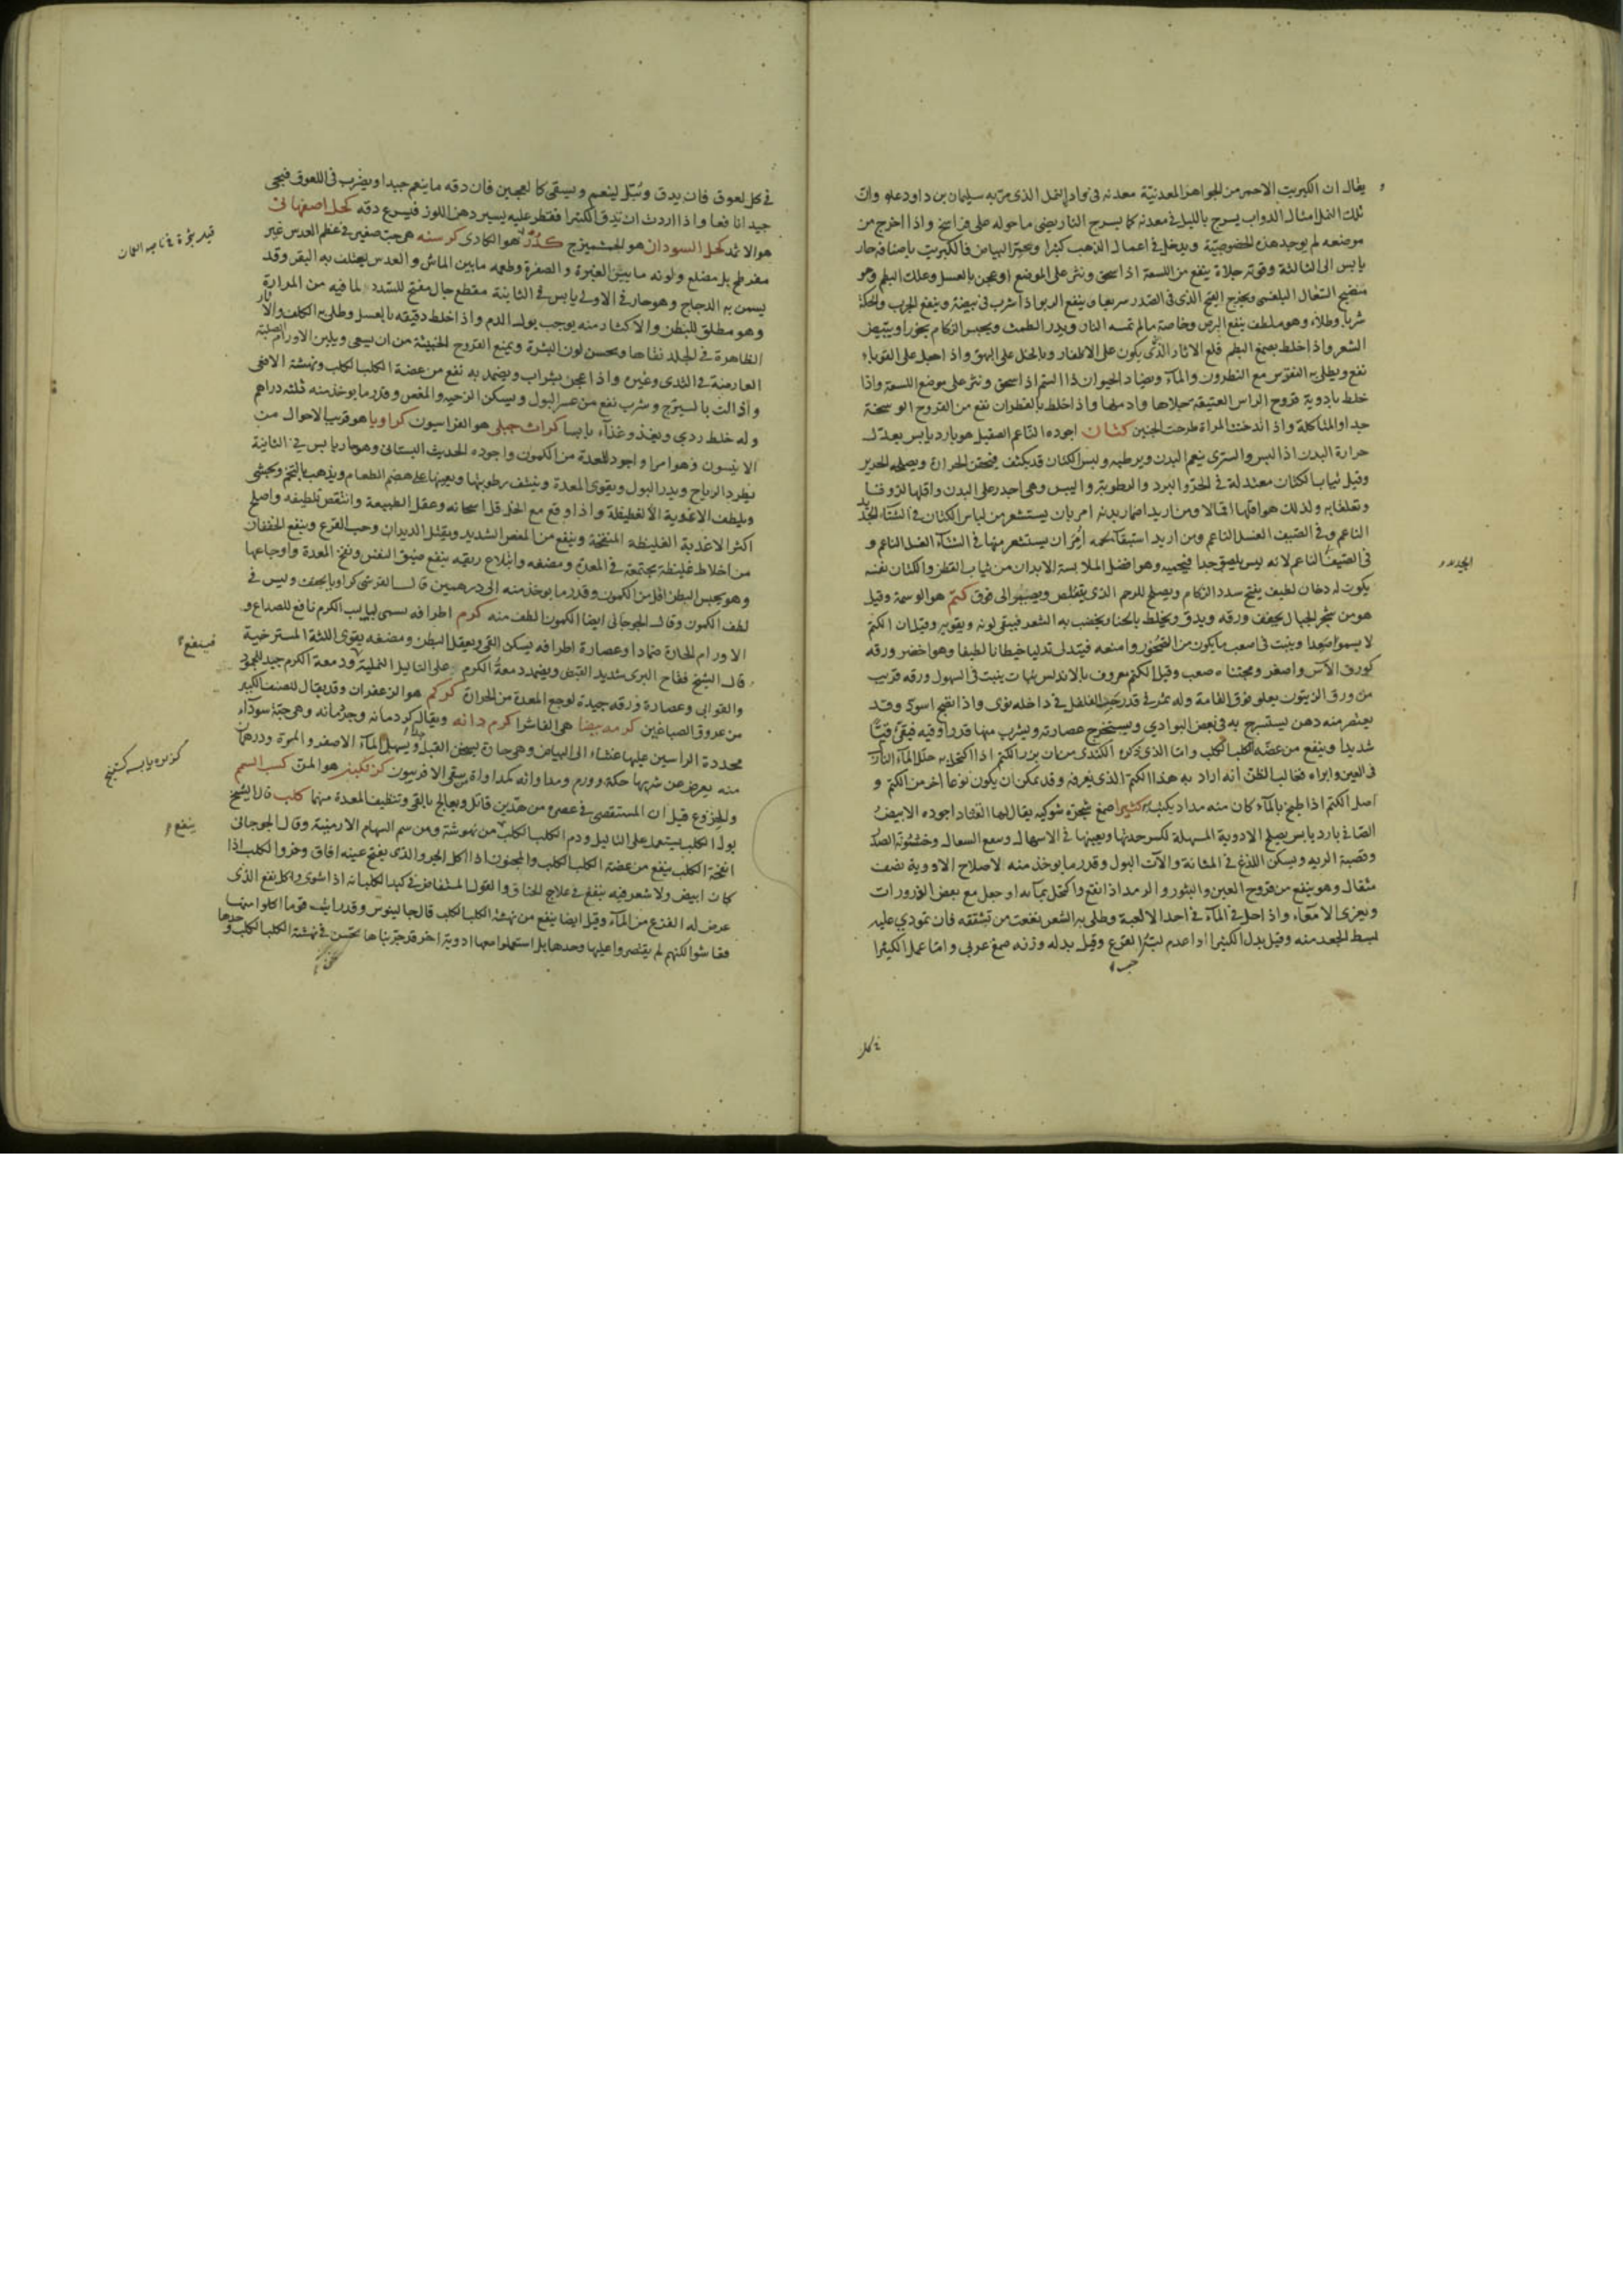 يقال ان الكبريت الاحمر من الجواهر المعدنية معدنه فى وادى النمل الذى مر به سليمان بن داود علو وان
تلك النمل امثال الدواب يسرج بالليل فى معدنه كما يسرج النار يضئ ما حوله على فراسخ واذا اخرج من
موضعه لم يوجد هذه الخصوصية ويدخل فى اعمال الذهب كثيرا ويحمر البياض فالكبريت باصنافه حار
يابس الى الثالثة وقوته جلاءة ينفع من اللسعة اذا سحق ونثر على الموضع او عجن بالعسل وعلك البطم وهو
منضج السعال البلغمى ويخرج القيح الذى فى الصدر سريعا وينفع الربو اذا شرب فى بيضة وينفع الجرب والحكة
شربا وطلاء وهو ملطف ينفع البرص وخاصة ما لم تمسه النار ويدر الطمث ويحبس الزكام بخورا ويبيض
الشعر واذا خلط بصمغ البطم قلع الاثار التى يكون على الاظفار وبالخل على البهق واذا حمل على القوباء
نفع ويطلى به النقرس مع النطرون والماء ويضاد الحيوان ذا السم اذا سحق ونثر على موضع اللسعة واذا
خلط بادوية قروح الراس العتيقة جلاها وادملها واذا خلط بالقطران نفع من القروح الوسخة
جدا والمتاكلة واذا اندخنت المراة طرحت الجنين كتان اجوده الناعم الصقيل هو بارد يابس يعدل
حرارة البدن اذا لبس والسترى ينعم البدن ويرطبه ولبس الكتان قد يكثف فتحقن الحرارة ويصلحه الحرير
وقيل ثياب الكتان معتدلة فى الحر والبرد والرطوبة واليبس وهى اجدر على البدن واقلها لزوقا
وتعلقا به ولذلك هو اقلها اقمالا ومن اريد اضمار بدنه امر بان يستشعر من لباس الكتان فى الشتاء الجديد
الناعم وفى الصيف الغسيل الناعم ومن اريد استبقاء لحمه امر ان يستشعر منها فى الشتاء الغسيل الناعم و
فى الصيف الناعم لانه ليس يلصق جدا فيحميه وهو افضل الملابسة الابدان من ثياب القطن والكتان نفسه
الجديد
يكون له دخان لطيف يفتح سدد الزكام ويصلح للرحم الذى يتقلص ويصير الى فوق كتم هو الوسمة وقيل
هو من شجر الجبال يجفف ورقه ويدق ويخلط بالحنا ويخضب به الشعر فيبقى لونه ويقويه وقيل ان الكتم
لا يسمو صعدا وينبت فى اصعب ما يكون من الصخور وامنعه فيتدلى تدليا خيطانا لطيفا وهو اخضر ورقه
كورق الاس واصغر ومجتناه صعب وقيل الكتم معروف بالاندلس نبات ينبت فى السهول ورقه قريب
من ورق الزيتون يعلو فوق القامة وله ثمر فى قدر حب الفلفل فى داخله نوى واذا نضج اسود وقد
يعتصر منه دهن يستسرج به فى بعض البوادى ويستخرج عصارته ويشرب منها قدر اوقية فيقئ قيئا
شديدا وينفع من عضة الكلب الكلب واما الذى ذكره الكندى من ان بزر الكتم اذا اكتحل به حلل الماء النازل
فى العين وابراه فغالب الظن انه اراد به هذا الكتم الذى يعرفه وقد يمكن ان يكون نوعا اخر من الكتم و
اصل الكتم اذا طبخ بالماء كان منه مداد يكتب به كثيرا صمغ شجرة شوكية يقال لها القتاد اجوده الابيض
الصافى بارد يابس يصلح الادوية المسهلة لكسر حدتها ويعينها فى الاسهال وسع السعال وخشونة الصدر
وقصبة الرية ويسكن اللذغ فى المثانة والات البول وقدر ما يوخذ منه لاصلاح الادوية نصف
مثقال وهو ينفع من قروح العين والبثور والرمد اذا انقع واكتحل بمائه او جعل مع بعض الذرورات
ويغرى الامعاء واذا حل فى الماء فى احد الالعبة وطلى به الشعر نفعت من تشققه فان تمودى عليه
بسط الجعد منه وقيل بدل الكثيرا اذا عدم لب القرع وقيل بدله وزنه صمغ عربى واما عمل الكثيرا
حب
فى كل
فى كل لعوق فان يدق ويبل لينعم ويسقى كالعجين فان دقه ما ينعم جيدا ويضرب فى اللعوق فيجى
جيدا نافعا واذا اردت ان تدق الكثيرا فقطر عليه يسير دهن اللوز فيسرع دقه كحل اصفهانى
هو الاثمد كحل السودان هو الجشميزج كدر هو الكادى كرسنه هى حب صغير فى عظم العدس غير
مفرطح بل مضلع ولونه ما بين الغبرة والصفرة وطعمه ما بين الماش والعدس يعتلف به البقر وقد
يسمن به الدجاج وهو حار فى الاولى يابس فى الثانية مقطع جال مفتح للسدد لما فيه من المرارة
وهو مطلق للبطن والاكثار منه يوجب بول الدم واذا خلط دقيقه بالعسل وطلى به الكلف والاثار
الظاهرة فى الجلد نقاها ويحسن لون البشرة ويمنع القروح الخبيثة من ان يسعى ويلين الاورام الصلبة
العارضة فى الثدى وغيره واذا عجن بشراب ويضمد به نفع من عضة الكلب الكلب ونهشة الافعى
واذا لت بالسيرج وشرب نفع من عسر البول ويسكن الزحير والمغص وقدر ما يوخذ منه ثلثه دراهم
وله خلط ردى ويغذو غذاء يابسا كراث جبلى هو الفراسيون كراويا هو قريب الاحوال من
الانيسون وهو امرا واجود للمعدة من الكمون واجوده الحديث البستانى وهو حار يابس فى الثانية
يطرد الرياح ويدر البول ويقوى المعدة وينشف رطوبتها ويعينها على هضم الطعام ويذهب بالتخم ويجشى
ويلطف الاغذية الغليظة واذا وقع مع الخل قل اسخانه وعقل الطبيعة وانتقص تلطيفه واصلح
اكثر الاغذية الغليظة المنتفخة وينفع من المغص الشديد ويقتل الديدان وحب القرع وينفع الخفقان
من اخلاط غليظة مجتمعة فى المعدة ومضغه وابتلاع ريقه ينفع ضيق النفس ونفخ المعدة واوجاعها
وهو يحبس البطن اقل من الكمون وقدر ما يوخذ منه الى درهمين قال القرشى كراويا يجفف وليس فى
لطف الكمون وقال الجرجانى ايضا الكمون الطف منه كرم اطرافه يسمى لبلب الكرم نافع للصداع و
الاورام الحارة ضمادا وعصارة اطرافه يسكن القئ ويعقل البطن ومضغه يقوى اللثة المسترخية
قال الشيخ فقاح البرى شديد القبض ويضمد دمعة الكرم على الثاليل النملية ودمعة الكرم جيد للجرب
فينفع
والقوابى وعصارة ورقه جيدة لوجع المعدة من الحرارة كركم هو الزعفران وقد يقال للصنف الكبير
من عروق الصباغين كرمه بيضا هى الفاشرا كرم دانه ويقال كردمانه وجردمانه وهى حبة سوداء
محددة الراسين عليها غشاء الى البياض وهى حارة لبعض القبل ويسهل الماء الاصفر والمرة ودرهمان
منه يعرض عن شربها حكة وورم ومداواته كمداواة من سقى الافربيون كزنكبين هو المن كسب السمسم
والخروع قيل ان المستقصى فى عصره من هذين قاتل ويعالج بالقئ وتنظيف المعدة منهما كلب قال الشيخ
بول الكلب يستعمل على الثاليل ودم الكلب الكلب من نهوشته ومن سم السهام الارمنية وقال الجرجانى
ينفع
انفحة الكلب ينفع من عضة الكلب الكلب والمجنون اذا اكل الجرو الذى يفتح عينه افاق وخرو الكلب اذا
كان ابيض ولا شعر فيه ينفع فى علاج الخناق والقول المستفاض فى كبد الكلب انه اذا شوى واكل نفع الذى
عرض له الفزع من الماء وقيل ايضا ينفع من نهشة الكلب الكلب قال جالينوس وقد رايت قوما اكلوا منها
فعاشوا لكنهم لم يقتصروا عليها وحدها بل استعملوا معها ادوية اخر قد جربناها تحسن فى نهشة الكلب الكلب وحدها